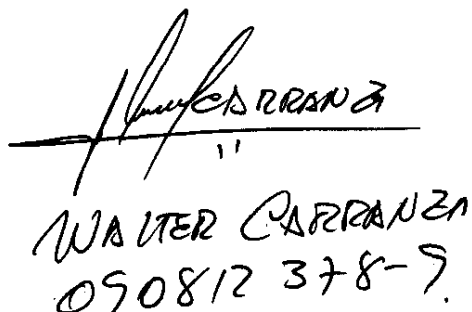 CARRANZ
"
WALTER CARRANZA
090812378-9.